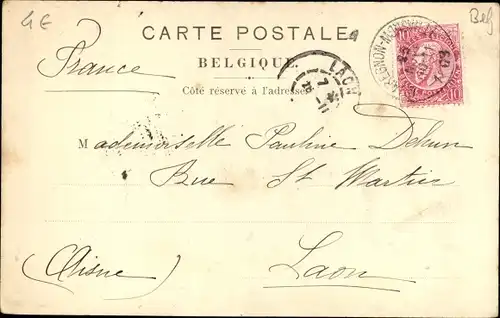 4E
Bel
CARTE POSTALE
BELGIQUE
LAON
France
Côté réservé à l'adresse
10 10
Mademoiselle Pauline Dehun
Rue St Martin
(Aisne)
Laon